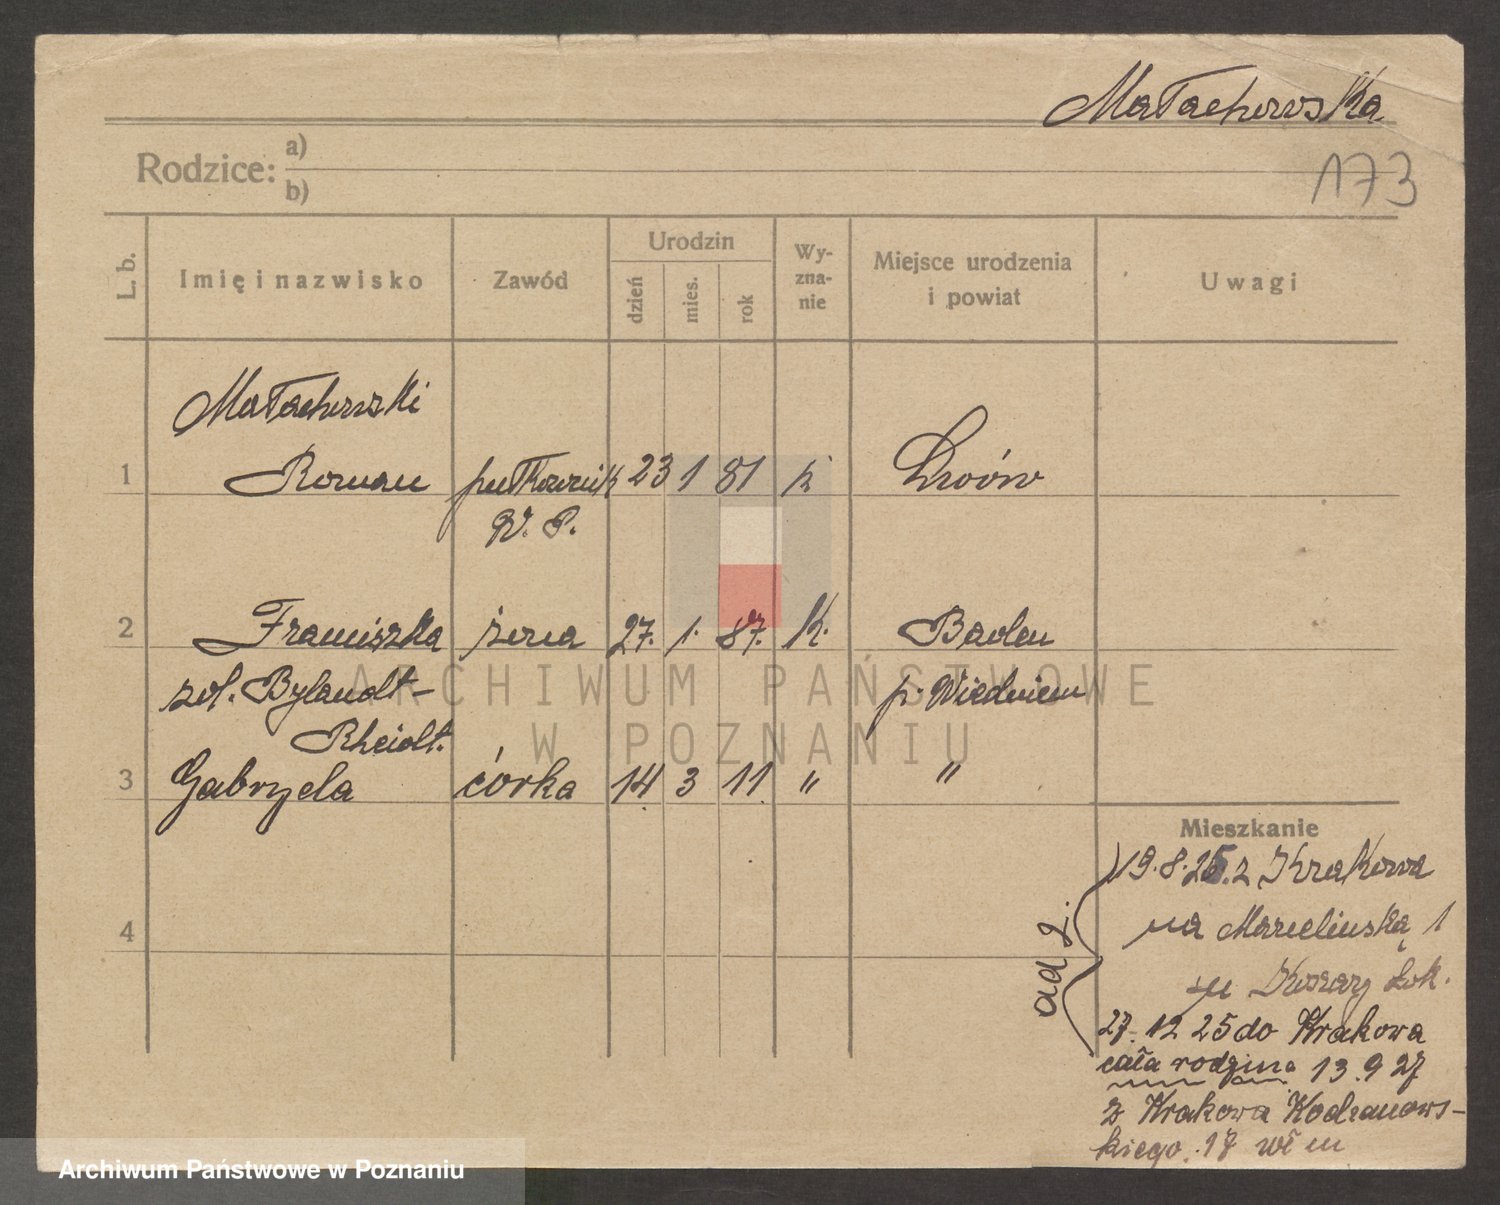 Małachowska
173
Rodzice: a)
b)
L. b. Imię i nazwisko Zawód Urodzin dzień mies. rok Wy-zna-nie Miejsce urodzenia i powiat Uwagi
Małachowski
1 Roman pułkownik 23 1 81 k Lwów
W. P.
2 Franciszka żona 27. 1. 87. k. Baden
zd. Bylandt- p. Wiedniem
Rheidt.
3 Gabryela córka 14 3 11 " "
4
Mieszkanie
ad 2.
19.8.25. z Krakowa
na Marcelińską 1
27. 12 25 do Krakowa
cała rodzina 13.9 27
z Krakowa
kiego 17
ARCHIWUM PAŃSTWOWE
W POZNANIU
Archiwum Państwowe w Poznaniu